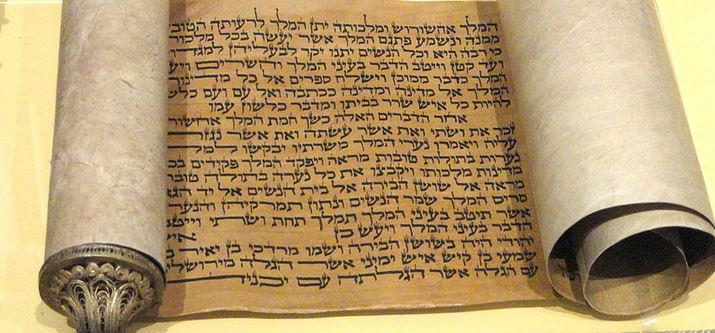 המלך אחשורוש ומלכותה יתן המלך לרעותה הטובה
ממנה ונשמע פתגם המלך אשר יעשה בכל מלכותו
כי רבה היא וכל הנשים יתנו יקר לבעליהן למגדו
ועד קטן וייטב הדבר בעיני המלך והשרים ויעש
המלך כדבר ממוכן וישלח ספרים אל כל מדינות
המלך אל מדינה ומדינה ככתבה ואל עם ועם כלש
להיות כל איש שרר בביתו ומדבר כלשון עמו
אחר הדברים האלה כשך חמת המלך אחשורוש
זכר את ושתי ואת אשר עשתה ואת אשר נגזר
עליה ויאמרו נערי המלך משרתיו יבקשו למלך
נערות בתולות טובות מראה ויפקד המלך פקידים בכל
מדינות מלכותו ויקבצו את כל נערה בתולה טובת
מראה אל שושן הבירה אל בית הנשים אל יד הגא
סריס המלך שמר הנשים ונתון תמרקיהן והנערה
אשר תיטב בעיני המלך תמלך תחת ושתי וייטב
הדבר בעיני המלך ויעש כן איש
יהודי היה בשושן הבירה ושמו מרדכי בן יאיר בן
שמעי בן קיש איש ימיני אשר הגלה מירושלים
עם הגלה אשר הגלתה עם יכניה